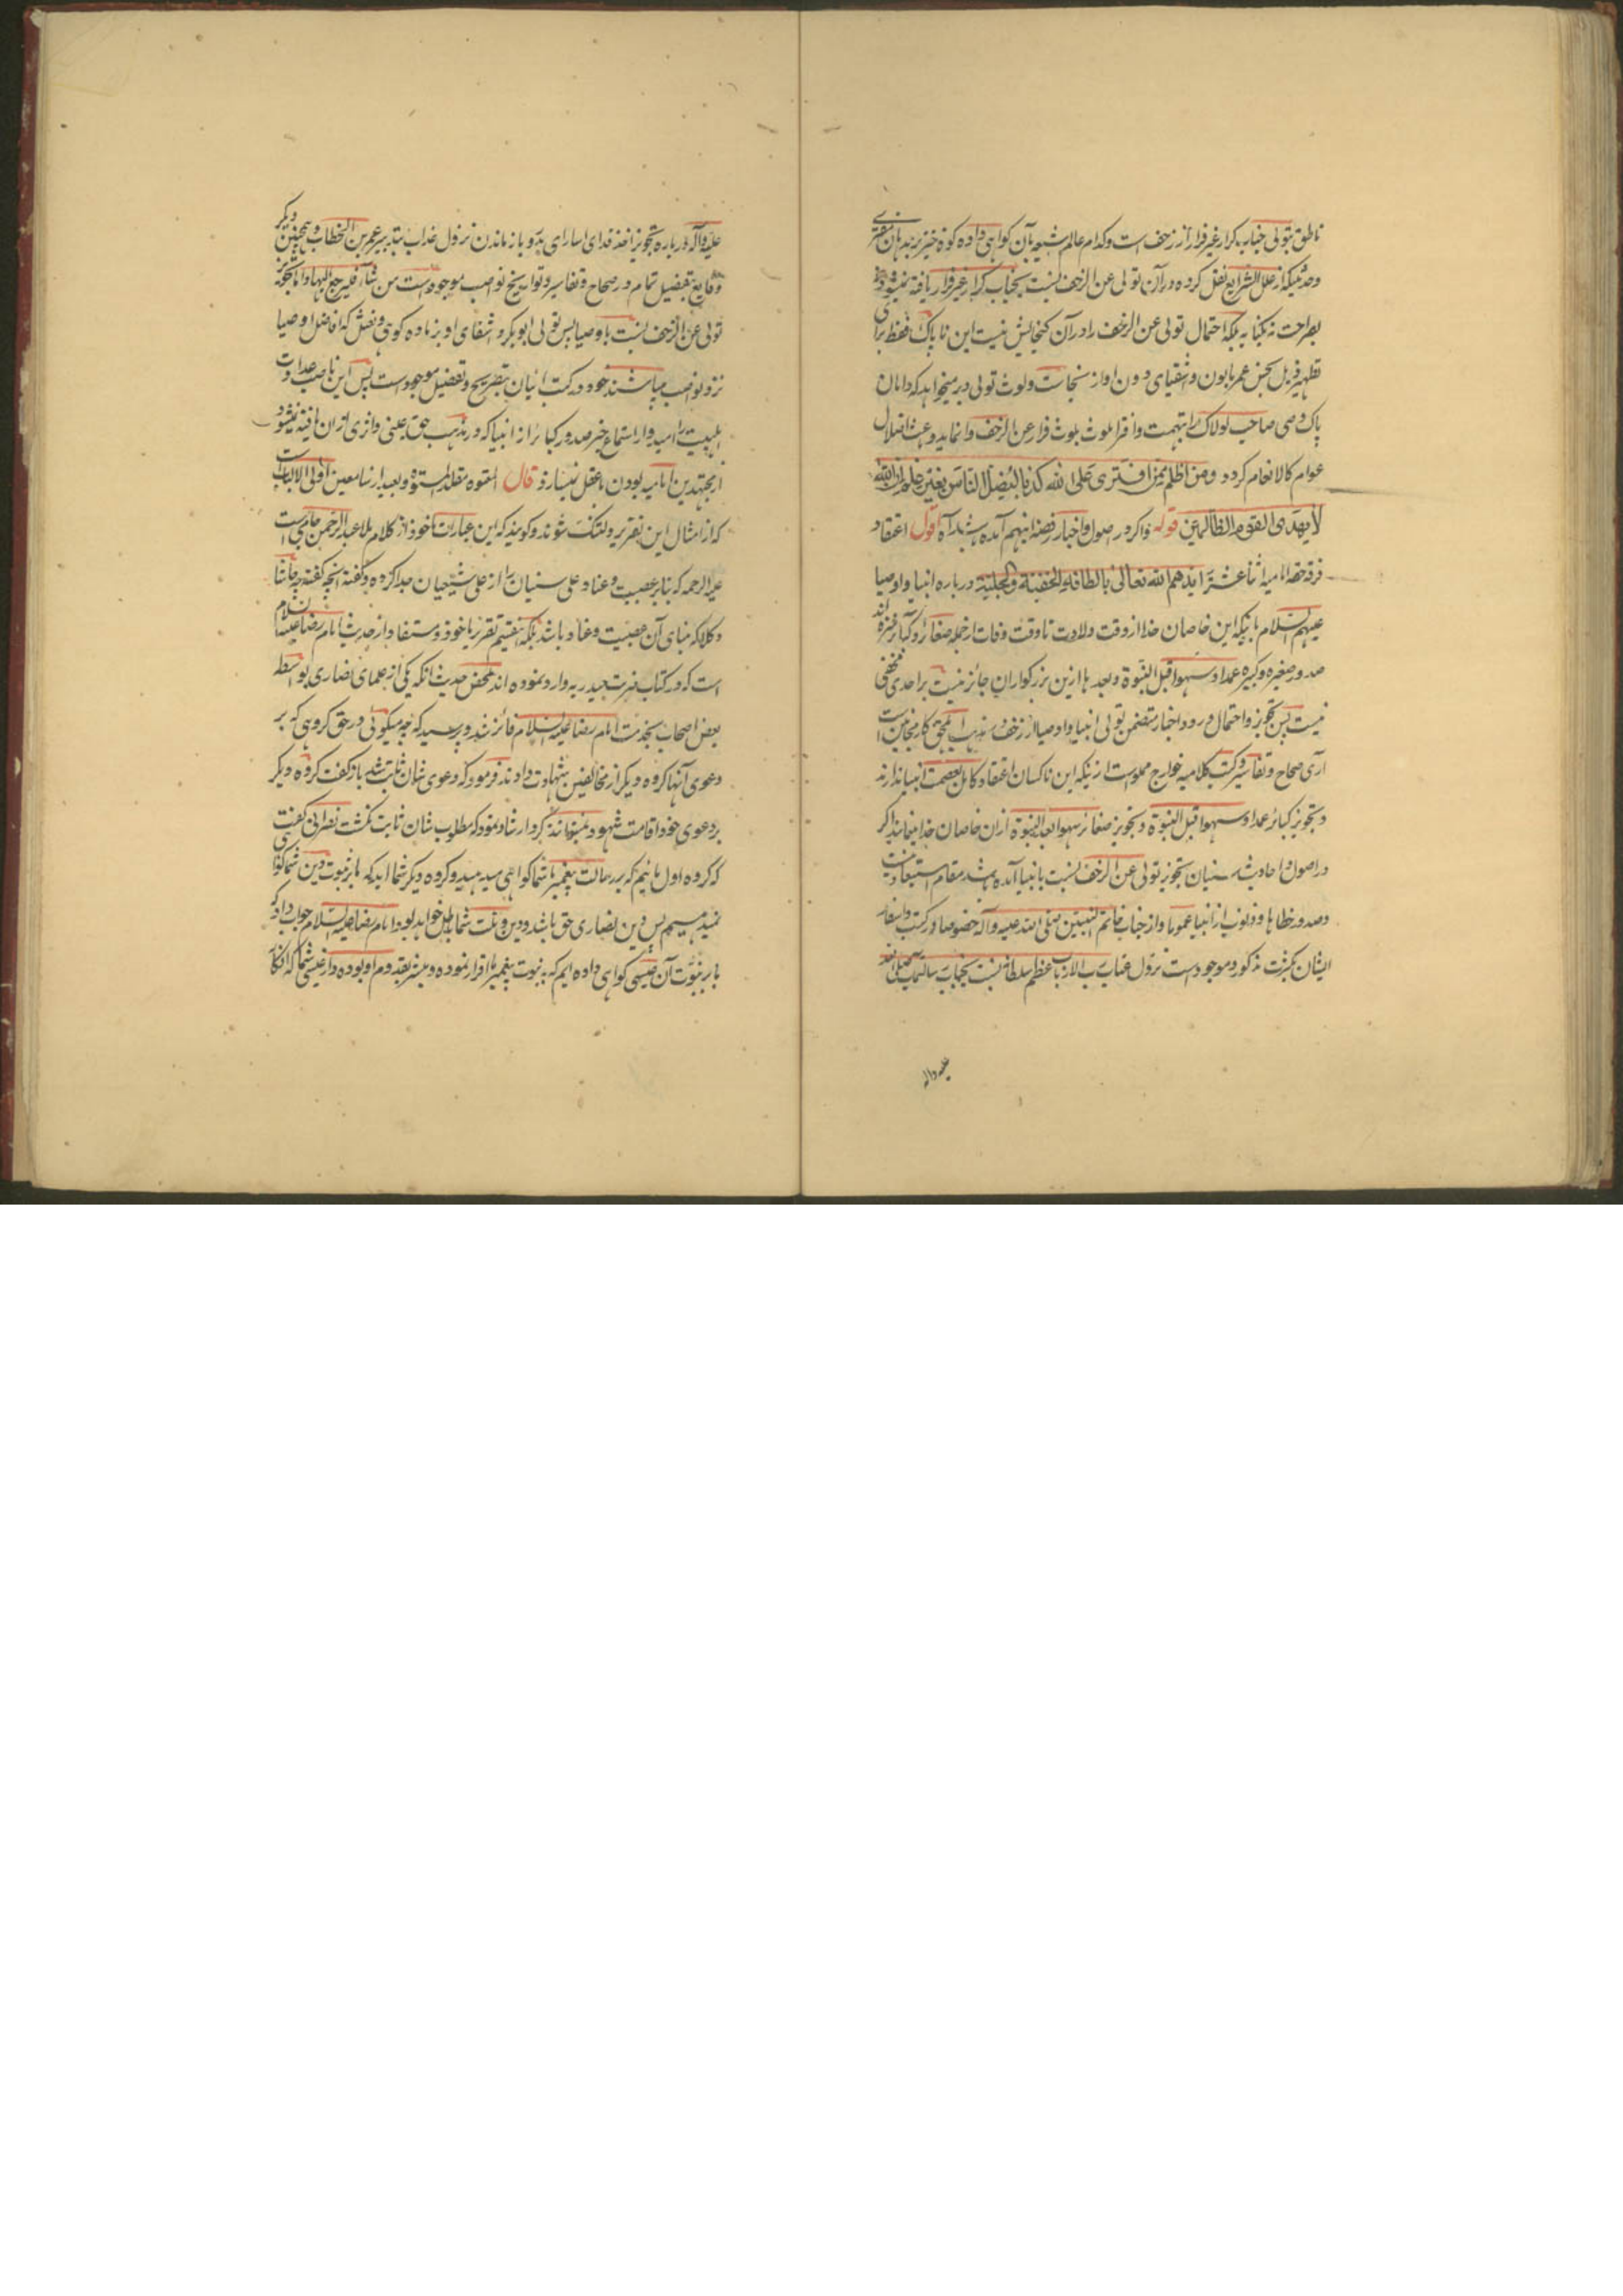 ناطق بتولی جناب کرار غیر فرار از زحف است و کدام عالم شیعه بآن کواهی داده کوه خیز بزبدهان مفتری
و حدیثیکه از علل الشرایع نقل کرده در آن تولی عن الزحف نسبت بجناب کرار غیر فرار یافته نمیشود
بصراحت نه بکنایه بلکه احتمال تولی عن الزحف را در آن کنجایش نیست این ناپاک فقط برای
تطهیر ذیل نجس عمر مابون و اشقیای دون او از نجاست و لوث تولی دبر میخواهد که دامان
پاک وصی صاحب لولاک را بتهمت و افترا ملوث بلوث فرار عن الزحف وانماید و عبث اضلال
عوام کالانعام کردد و من اظلم ممن افتری علی الله کذبا لیضل الناس بغیر علم ان الله
لا یهدی القوم الظالمین قوله و اکر در اصول و اخبار رفضه اینهم آمده باشد اه اقول اعتقاد
فرقه حقه امامیه اثنا عشر ایدهم الله تعالی بالطافه الخفیة و الجلیة درباره انبیا و اوصیا
علیهم السلام باینکه این خاصان خدا از وقت ولادت تا وقت وفات از جمله صغائر و کبائر منزه اند
صدور صغیره و کبیره عمدا و سهوا قبل النبوة و بعدها ازین بزرکواران جائز نیست بر احدی مخفی
نیست پس تجویز و احتمال ورود اخبار متضمن تولی انبیا و اوصیا از زحف در مذهب اهل حق کار مجانین است
آری صحاح و تفاسیر و کتب کلامیه خوارج مملوست ازینکه این ناکسان اعتقاد کامل بعصمت انبیا ندارند
و تجویز کبائر عمدا و سهوا قبل النبوة و تجویز صغائر سهوا بعد النبوة ازان خاصان خدا مینمایند اکر
در اصول و احادیث سنیان تجویز تولی عن الزحف نسبت بانبیا آمده باشد مقام استبعاد نیست
و صدور خطاها و ذنوب از انبیا عموما و از جناب خاتم النبیین صلی الله علیه و آله خصوصا در کتب و اسفار
ایشان بکثرت مذکور و موجودست نزول عتاب رب الارباب عظم سلطانه نسبت بجناب رسالتمآب صلی الله
علیه واله
علیه و آله درباره تجویز اخذ فدای اسارای بدر و بازماندن نزول عذاب بتدبیر عمر بن الخطاب و همچنین دیکر
وقایع بتفصیل تمام در صحاح و تفاسیر و تواریخ نواصب موجودست من شاء فلیرجع الیها و اما تجویز
تولی عن الزحف نسبت باوصیا پس تولی ابوبکر و اشقای او بزیاده کوی و نعش که افاضل اوصیا
نزد نواصب میباشند خود در کتب ائیان بتصریح و تفصیل موجودست پس این ناصب عداوت
اهلبیت را امیدوار استماع خبر صدور کبائر از انبیا که در مذهب حق عینی و اثری ازان یافته نمیشود
از مجتهدین امامیه بودن با عقل نمیسازد قال المتفوه مقلد المستوه و بعید از سامعین اولی الالباب است
که از امثال این تقریر دلتنک شوند و کویند که این عبارات ماخوذ از کلام ملا عبد الرحمن جامی است
علیه الرحمه که بنابر عصبیت و عناد علی سنیان را از علی شیعیان جدا کرده و کفته انچه کفته چه حاشا
و کلا که مبنای آن عصبیت و عناد باشد بلکه تفتیم تقریر ماخوذ و مستفاد از حدیث امام رضا علیه السلام
است که در کتاب ضربت حیدریه وارد نموده اند ملخص حدیث انکه یکی از علمای نصاری بواسطه
بعض اصحاب بخدمت امام رضا علیه السلام فائز شد و پرسید که چه میکوئی در حق کروهی که بر
دعوی آنها کروه دیکر از مخالفین شهادت دادند فرمود که دعوی شان ثابت شد باز کفت کروه دیکر
بر دعوی خود اقامت شهود نتوانند کرد ارشاد نمود که مطلوب شان ثابت نکشت نصرانی کفت
که کروه اول مائیم که بر رسالت پیغمبر ما شما کواهی میدهید و کروه دیکر شما اید که ما بر ثبوت دین شما کواهی
نمیدهیم پس دین نصاری حق باشد و دین و ملت شما باطل خواهد بود امام رضا علیه السلام جواب داد که
ما بر نبوت آن عیسی کواهی داده ایم که به نبوت پیغمبر ما اقرار نموده و مبشر بقدوم او بوده و از عیسی شما که انکار